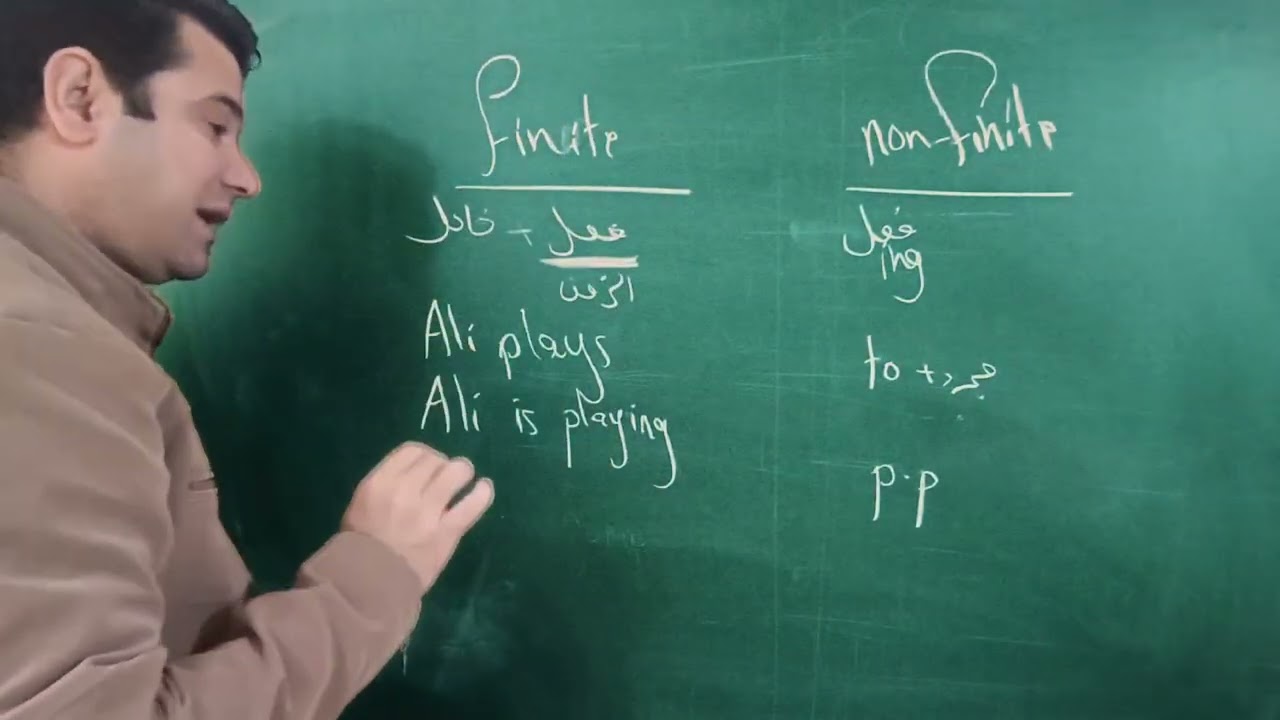 finite
فاعل + فعل
الزمن
Ali plays
Ali is playing
non-finite
فعل
ing
to + مجرد
p.p